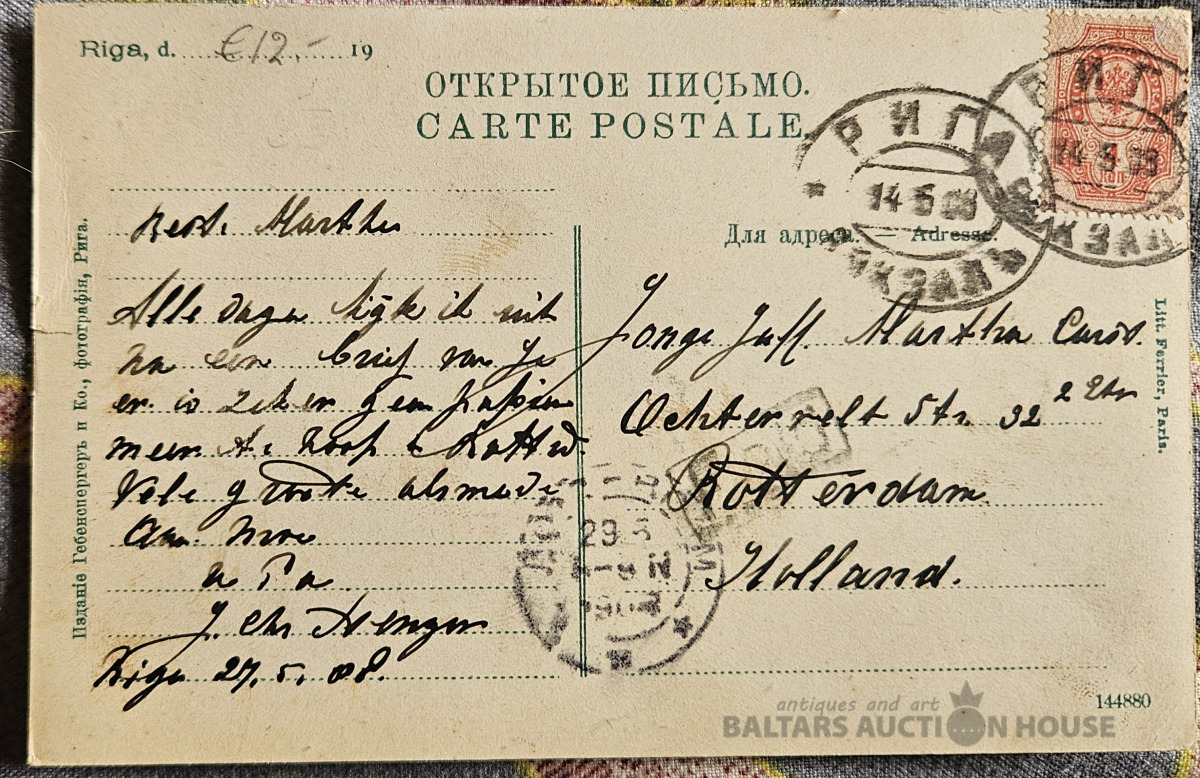 Riga, d. €12.- 19
ОТКРЫТОЕ ПИСЬМО.
CARTE POSTALE.
РИГА
14 5 08
ВОКЗАЛЪ
РИГА
14 5 08
ВОКЗАЛЪ
Для адреса. — Adresse.
Best. Martha
Alle dagen kijk ik uit
na een brief van je
er is zeker geen papier
meer te koop te Rotterd.
Vele groete alsmede
aan Moe
u Pa
J. Chr
Riga 27. 5. 08.
Jonge Juff. Martha
Ochtervelt Str. 32
Rotterdam
Holland.
29
Изданіе Гебенспергеръ и Ко., фотографія, Рига.
Litt. Ferrier, Paris.
144880
antiques and art
BALTARS AUCTION HOUSE